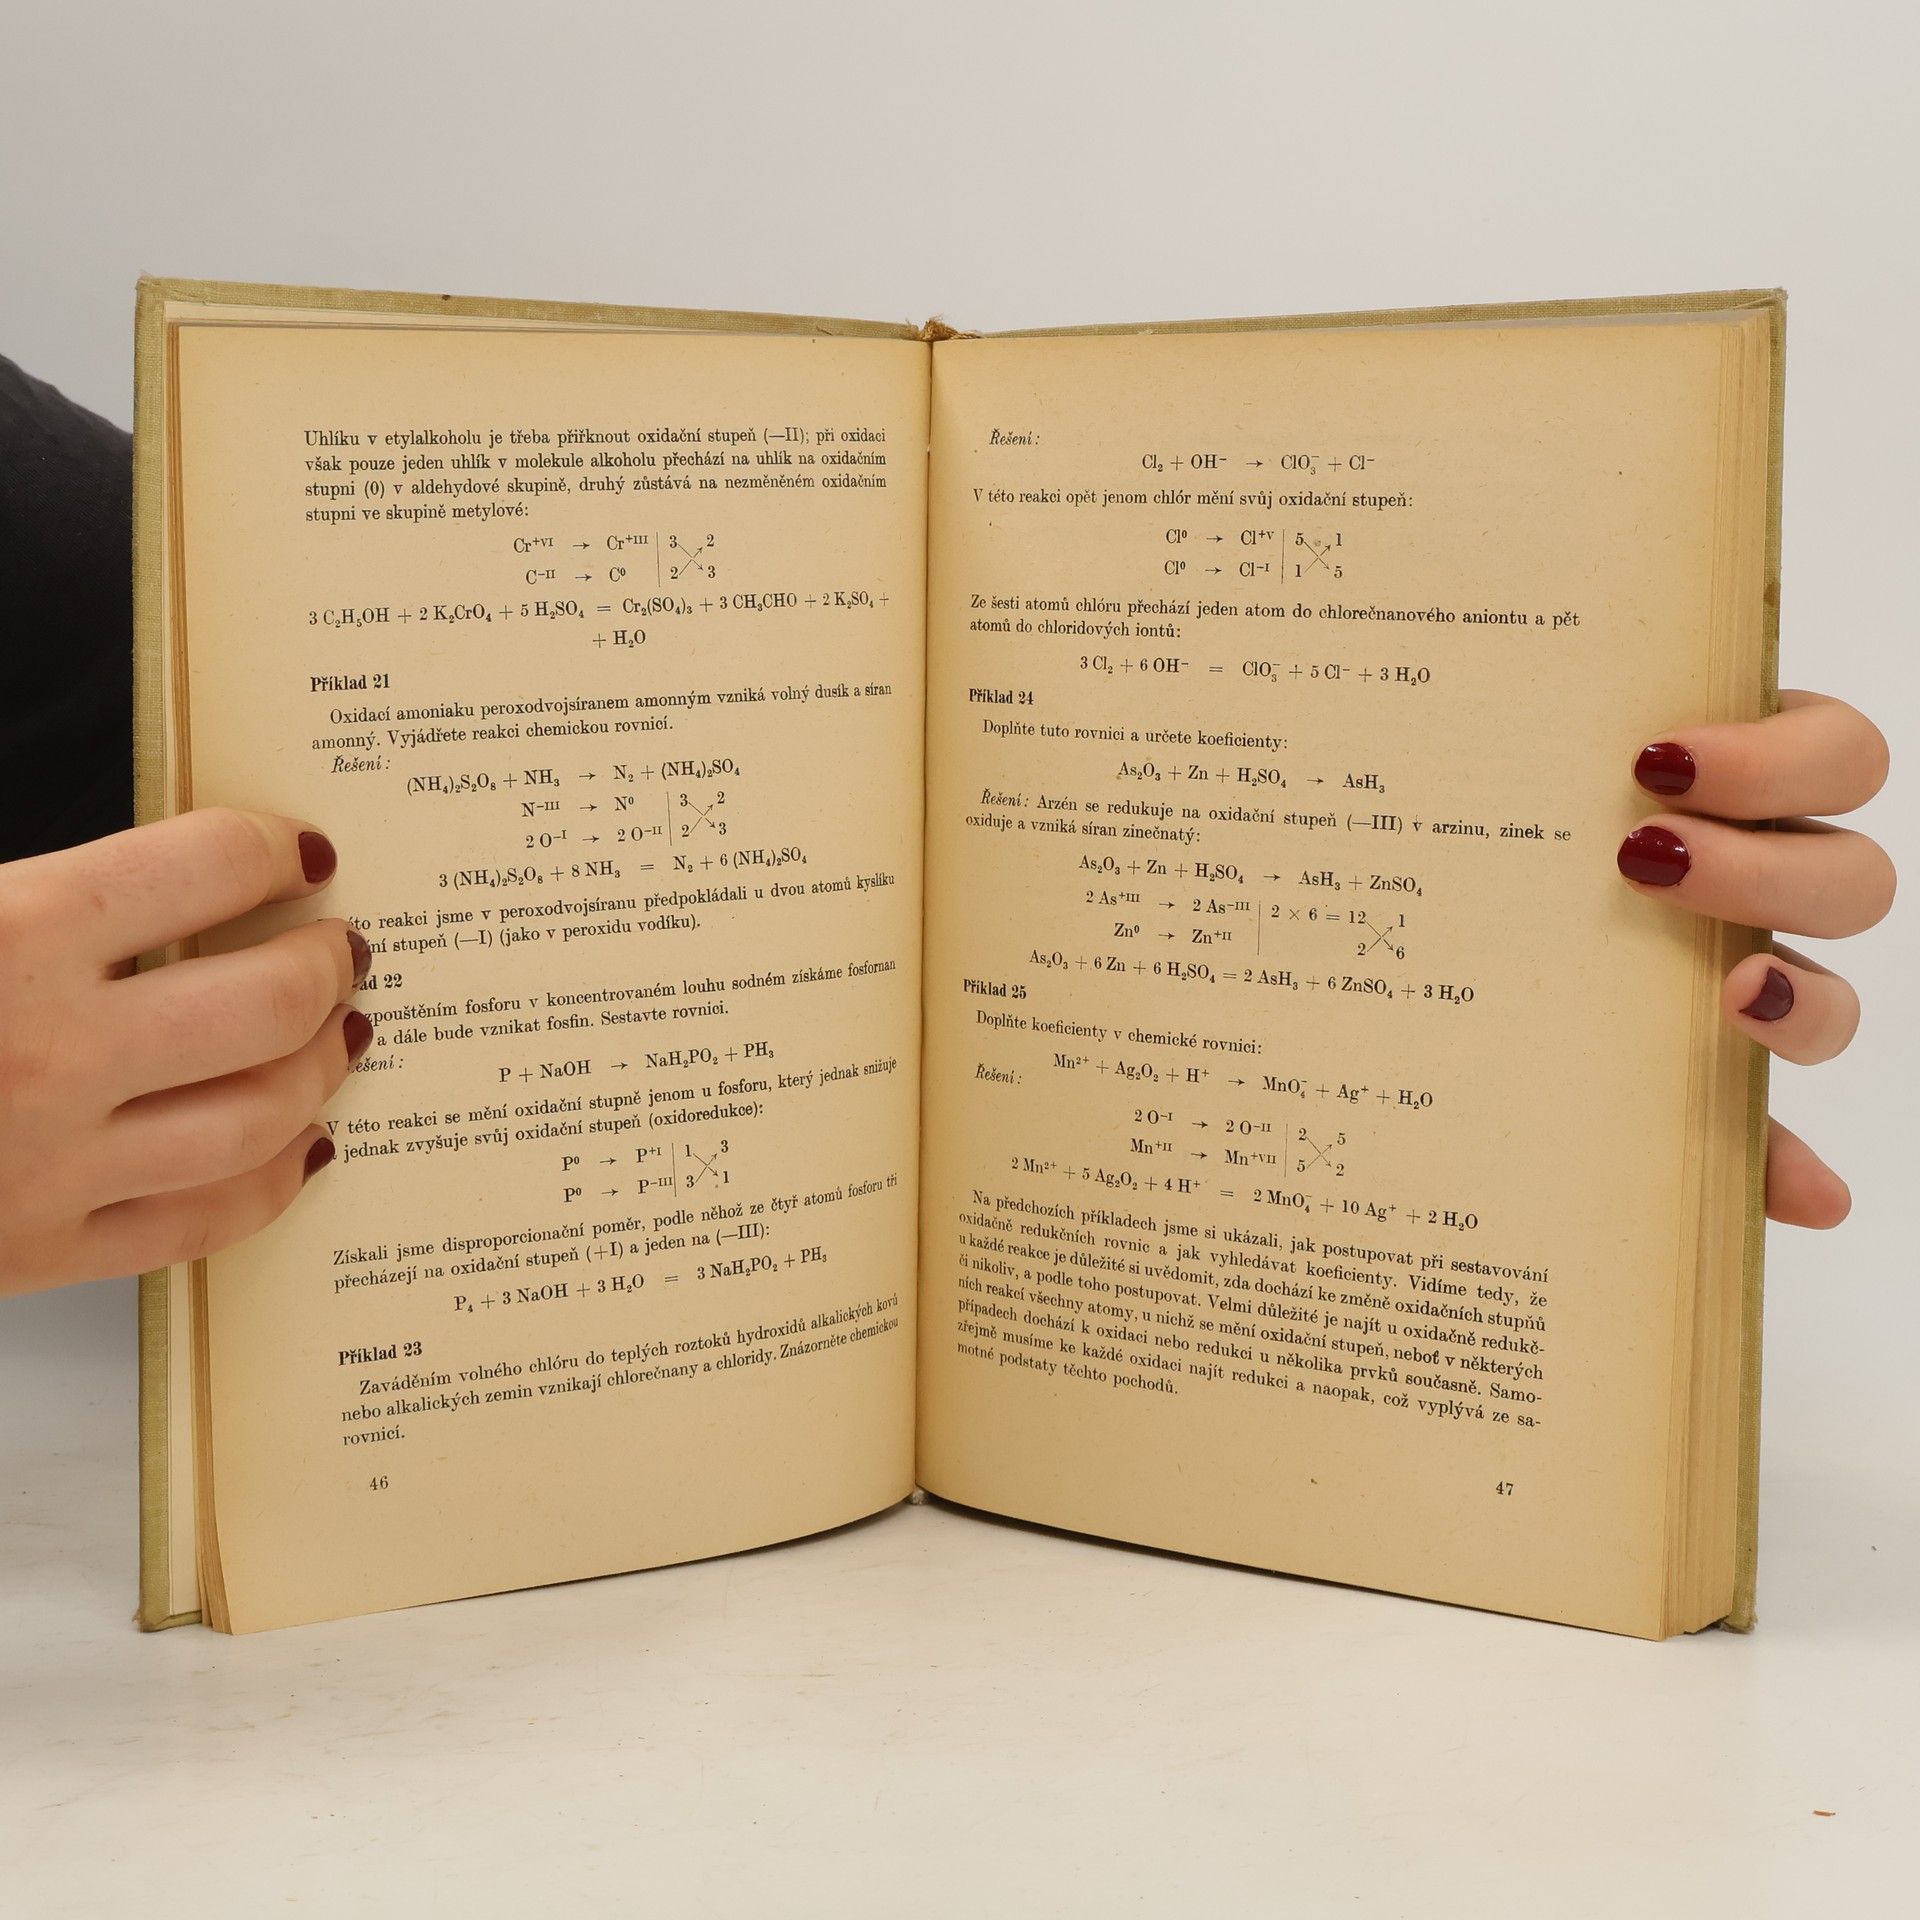 Uhlíku v etylalkoholu je třeba přiřknout oxidační stupeň (—II); při oxidaci
však pouze jeden uhlík v molekule alkoholu přechází na uhlík na oxidačním
stupni (0) v aldehydové skupině, druhý zůstává na nezměněném oxidačním
stupni ve skupině metylové:
Cr⁺ⱽᴵ → Cr⁺ᴵᴵᴵ | 3 2
C⁻ᴵᴵ → C⁰ | 2 3
3 C₂H₅OH + 2 K₂CrO₄ + 5 H₂SO₄ = Cr₂(SO₄)₃ + 3 CH₃CHO + 2 K₂SO₄ +
+ H₂O
Příklad 21
Oxidací amoniaku peroxodvojsíranem amonným vzniká volný dusík a síran
amonný. Vyjádřete reakci chemickou rovnicí.
Řešení:
(NH₄)₂S₂O₈ + NH₃ → N₂ + (NH₄)₂SO₄
N⁻ᴵᴵᴵ → N⁰ | 3 2
2 O⁻ᴵ → 2 O⁻ᴵᴵ | 2 3
3 (NH₄)₂S₂O₈ + 8 NH₃ = N₂ + 6 (NH₄)₂SO₄
reakci jsme v peroxodvojsíranu předpokládali u dvou atomů kyslíku
stupeň (—I) (jako v peroxidu vodíku).
22
fosforu v koncentrovaném louhu sodném získáme fosfornan
a dále bude vznikat fosfin. Sestavte rovnici.
P + NaOH → NaH₂PO₂ + PH₃
V této reakci se mění oxidační stupně jenom u fosforu, který jednak snižuje
jednak zvyšuje svůj oxidační stupeň (oxidoredukce):
P⁰ → P⁺ᴵ | 1 3
P⁰ → P⁻ᴵᴵᴵ | 3 1
Získali jsme disproporcionační poměr, podle něhož ze čtyř atomů fosforu tři
přecházejí na oxidační stupeň (+I) a jeden na (—III):
P₄ + 3 NaOH + 3 H₂O = 3 NaH₂PO₂ + PH₃
Příklad 23
Zaváděním volného chlóru do teplých roztoků hydroxidů alkalických kovů
nebo alkalických zemin vznikají chlorečnany a chloridy. Znázorněte chemickou
rovnicí.
46
Řešení:
Cl₂ + OH⁻ → ClO₃⁻ + Cl⁻
V této reakci opět jenom chlór mění svůj oxidační stupeň:
Cl⁰ → Cl⁺ⱽ | 5 1
Cl⁰ → Cl⁻ᴵ | 1 5
Ze šesti atomů chlóru přechází jeden atom do chlorečnanového aniontu a pět
atomů do chloridových iontů:
3 Cl₂ + 6 OH⁻ = ClO₃⁻ + 5 Cl⁻ + 3 H₂O
Příklad 24
Doplňte tuto rovnici a určete koeficienty:
As₂O₃ + Zn + H₂SO₄ → AsH₃
Řešení: Arzén se redukuje na oxidační stupeň (—III) v arzinu, zinek se
oxiduje a vzniká síran zinečnatý:
As₂O₃ + Zn + H₂SO₄ → AsH₃ + ZnSO₄
2 As⁺ᴵᴵᴵ → 2 As⁻ᴵᴵᴵ | 2 × 6 = 12 1
Zn⁰ → Zn⁺ᴵᴵ | 2 6
As₂O₃ + 6 Zn + 6 H₂SO₄ = 2 AsH₃ + 6 ZnSO₄ + 3 H₂O
Příklad 25
Doplňte koeficienty v chemické rovnici:
Mn²⁺ + Ag₂O₂ + H⁺ → MnO₄⁻ + Ag⁺ + H₂O
Řešení:
2 O⁻ᴵ → 2 O⁻ᴵᴵ | 2 5
Mn⁺ᴵᴵ → Mn⁺ⱽᴵᴵ | 5 2
2 Mn²⁺ + 5 Ag₂O₂ + 4 H⁺ = 2 MnO₄⁻ + 10 Ag⁺ + 2 H₂O
Na předchozích příkladech jsme si ukázali, jak postupovat při sestavování
oxidačně redukčních rovnic a jak vyhledávat koeficienty. Vidíme tedy, že
u každé reakce je důležité si uvědomit, zda dochází ke změně oxidačních stupňů
či nikoliv, a podle toho postupovat. Velmi důležité je najít u oxidačně redukč-
ních reakcí všechny atomy, u nichž se mění oxidační stupeň, neboť v některých
případech dochází k oxidaci nebo redukci u několika prvků současně. Samo-
zřejmě musíme ke každé oxidaci najít redukci a naopak, což vyplývá ze sa-
motné podstaty těchto pochodů.
47